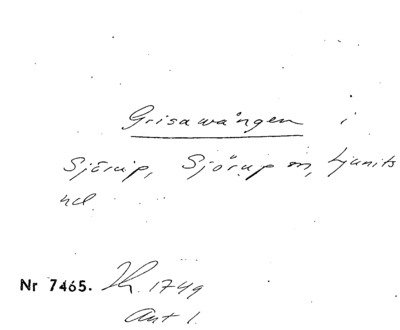 Grisawången i
Sjörup, Sjörup sn, Ljunits
hd.
Nr 7465. Kh. 1749
Ant 1.